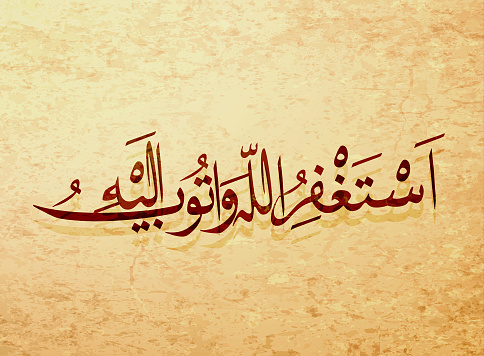 اَسْتَغْفِرُ اللّٰهَ وَاَتُوبُ اِلَيْهِ